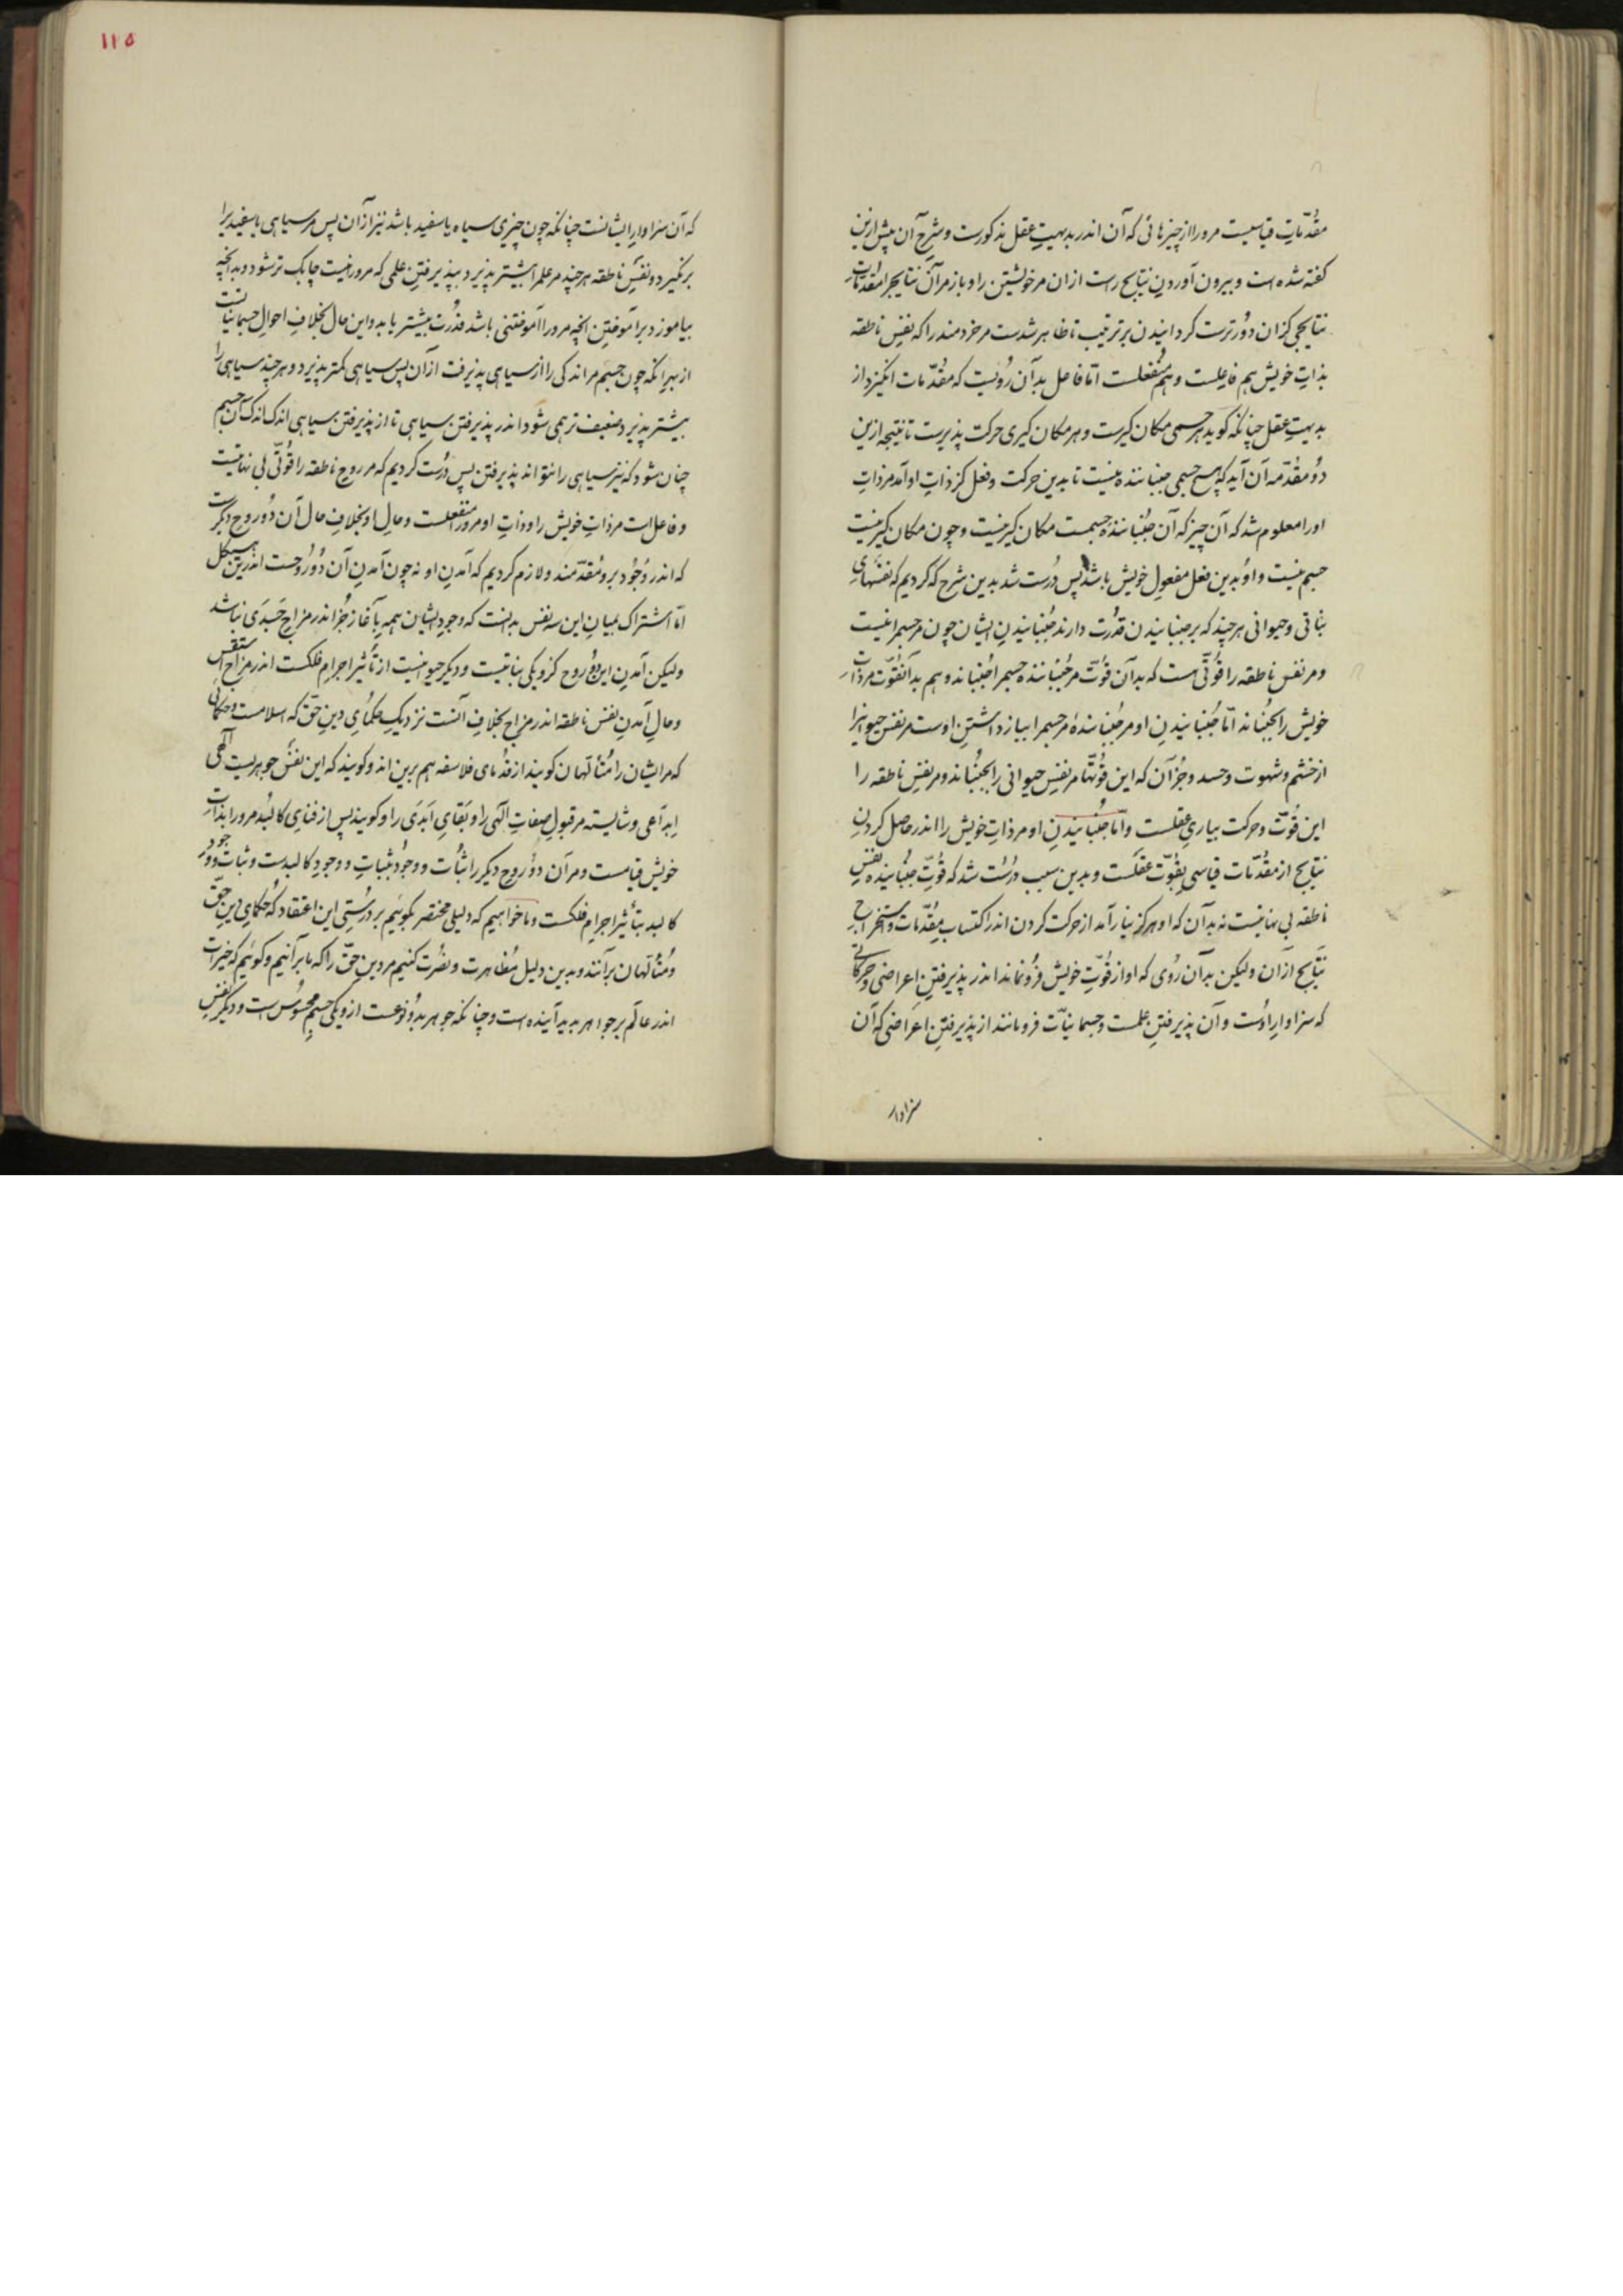 مقدّماتِ قیاسیست مرورا از چیزهائی که آن اندر بدیهتِ عقل مذکورست و شرحِ آن پیش ازین
کفته شده است و بیرون آوردنِ نتایج راست ازان مرخویشتن را و باز مرآن نتایجرا مقدّمات
نتایجی کزان دُورترست کردانیدن برترتیب تا ظاهر شدست مرخردمند را که نفسِ ناطقه
بذاتِ خویش هم فاعلست و هم منفعلست امّا فاعل بدآن رُویست که مقدّمات انکیزد از
بدیهتِ عقل چنانکه کوید هر جسمی مکان کیرست و هر مکان کیری حرکت پذیرست تا نتیجه ازین
دو مقدّمه آن آید که هیچ جسمی جنباننده نیست تا بدین حرکت و فعل کز ذاتِ او آمد مرذاتِ
اورا معلوم شد که آن چیز که آن جُنباننده جسمست مکان کیر نیست و چون مکان کیر نیست
جسم نیست و او بدین فعل مفعولِ خویش باشد پس دُرست شد بدین شرح که کردیم که نفسهایِ
نباتی و حیوانی هرچند که بر جنبانیدن قدرت دارند جُنبانیدنِ ایشان چون مرجسمرا نیست
و مر نفسِ ناطقه را قوّتی هست که بدآن قوّت مرجُنباننده جسمرا جُنباند و هم بدآن قوّت مرذاتِ
خویش را بجنباند امّا جُنبانیدنِ او مرجُنباننده مرجسمرا ببازداشتنِ اوست مر نفسِ حیوانیرا
از خشم و شهوت و حسد و جز آن که این قوّتها مر نفسِ حیوانی را بجنباند و مر نفسِ ناطقه را
این قوّت و حرکت بیاریِ عقلست وامّا جُنبانیدنِ او مرذاتِ خویش را اندر حاصل کردنِ
نتایج از مقدّمات قیاسی بقوّتِ عقلست و بدین سبب درُست شد که قوّتِ جُنباننده نفسِ
ناطقه بی نهایتست نه بدآن که او هرکز نیارآمد از حرکت کردن اندر اکتسابِ مقدّمات و استخراجِ
نتایج ازآن ولیکن بدآن رُوی که او از قوّتِ خویش فرو نماند اندر پذیرفتنِ اعراضی و حرکاتی
که سزاوارِ اوست و آن پذیرفتنِ علمست و جسمانیّات فرو مانند از پذیرفتنِ اعراضی که آن
سزاوار
۱۱۵
که آن سزاوارِ ایشانست چنانکه چون چیزی سیاه یا سفید باشد نیز ازآن پس مر سیاهی یا سفیدیرا
برنکیرد و نفسِ ناطقه هرچند مر علمرا بیشتر پذیرد بپذیرفتنِ علمی که مرورا نیست چابک تر شود و بدانچه
بیاموزد برآموختنِ انچه مرورا آموختنی باشد قدرت بیشتر یابد و این حال بخلافِ احوالِ جسمانیّاتست
از بهر انکه چون جسم مر اندکی را از سیاهی پذیرفت ازآن پس سیاهی کمتر پذیرد و هرچند سیاهی را
بیشتر پذیرد ضعیف تر همی شود اندر پذیرفتنِ سیاهی تا از پذیرفتنِ سیاهی اندک اندک آن جسم
چنان شود که نیز سیاهی را نتواند پذیرفتن پس درُست کردیم که مر روحِ ناطقه را قوّتی بی نهایتست
و فاعل است مرذاتِ خویش را و ذاتِ او مرورا منفعلست و حالِ او بخلافِ حالِ آن دو روح دیکرست
که اندر وُجود برو مُقدّمند و لازم کردیم که آمدنِ او نه چون آمدنِ آن دُو روحست اندرین هیکل
امّا اشتراک بمیانِ این سه نفس بدانست که وجودِ ایشان همه بآغاز جُز اندر مزاجِ جَسَدی نباشد
ولیکن آمدنِ این دو روح کزو یکی نباتیست و دیکر حیوانیست از تأثیرِ اجرامِ فلکست اندر مزاجِ استقس
و حالِ آمدنِ نفسِ ناطقه اندر مزاج بخلافِ آنست نزدیکِ حکمایِ دینِ حقّ که اسلامست و حکمائی
که مر ایشان را متألّهان کویند از قدمای فلاسفه هم برین اند و کویند که این نفس جوهریست آلهی
اِبدآعی و شایسته مر قبولِ صفاتِ آلهی را و بَقایِ اَبَدَی را و کویند پس از فنایِ کالبُد مرورا بذاتِ
خویش قیامست و مر آن دو روحِ دیکر را ثبات و وجود بثباتِ و وجودِ کالبدست و ثبات و وجودِ
کالبد بتأثیرِ اجرامِ فلکست و ما خواهیم که دلیلی مختصر بکوئیم بر درستیِ این اعتقاد که حکمایِ دینِ حقّ
و متألّهان برآنند و بدین دلیل مُظاهرت و نصرت کنیم مردینِ حقّ را که ما برآنیم و کوئیم که خیرات
اندر عالَم بر جواهر پدید آینده است و چنانکه جوهر بدو نوعست ازو یکی جسمِ محسُوس است و دیکر نفسِ